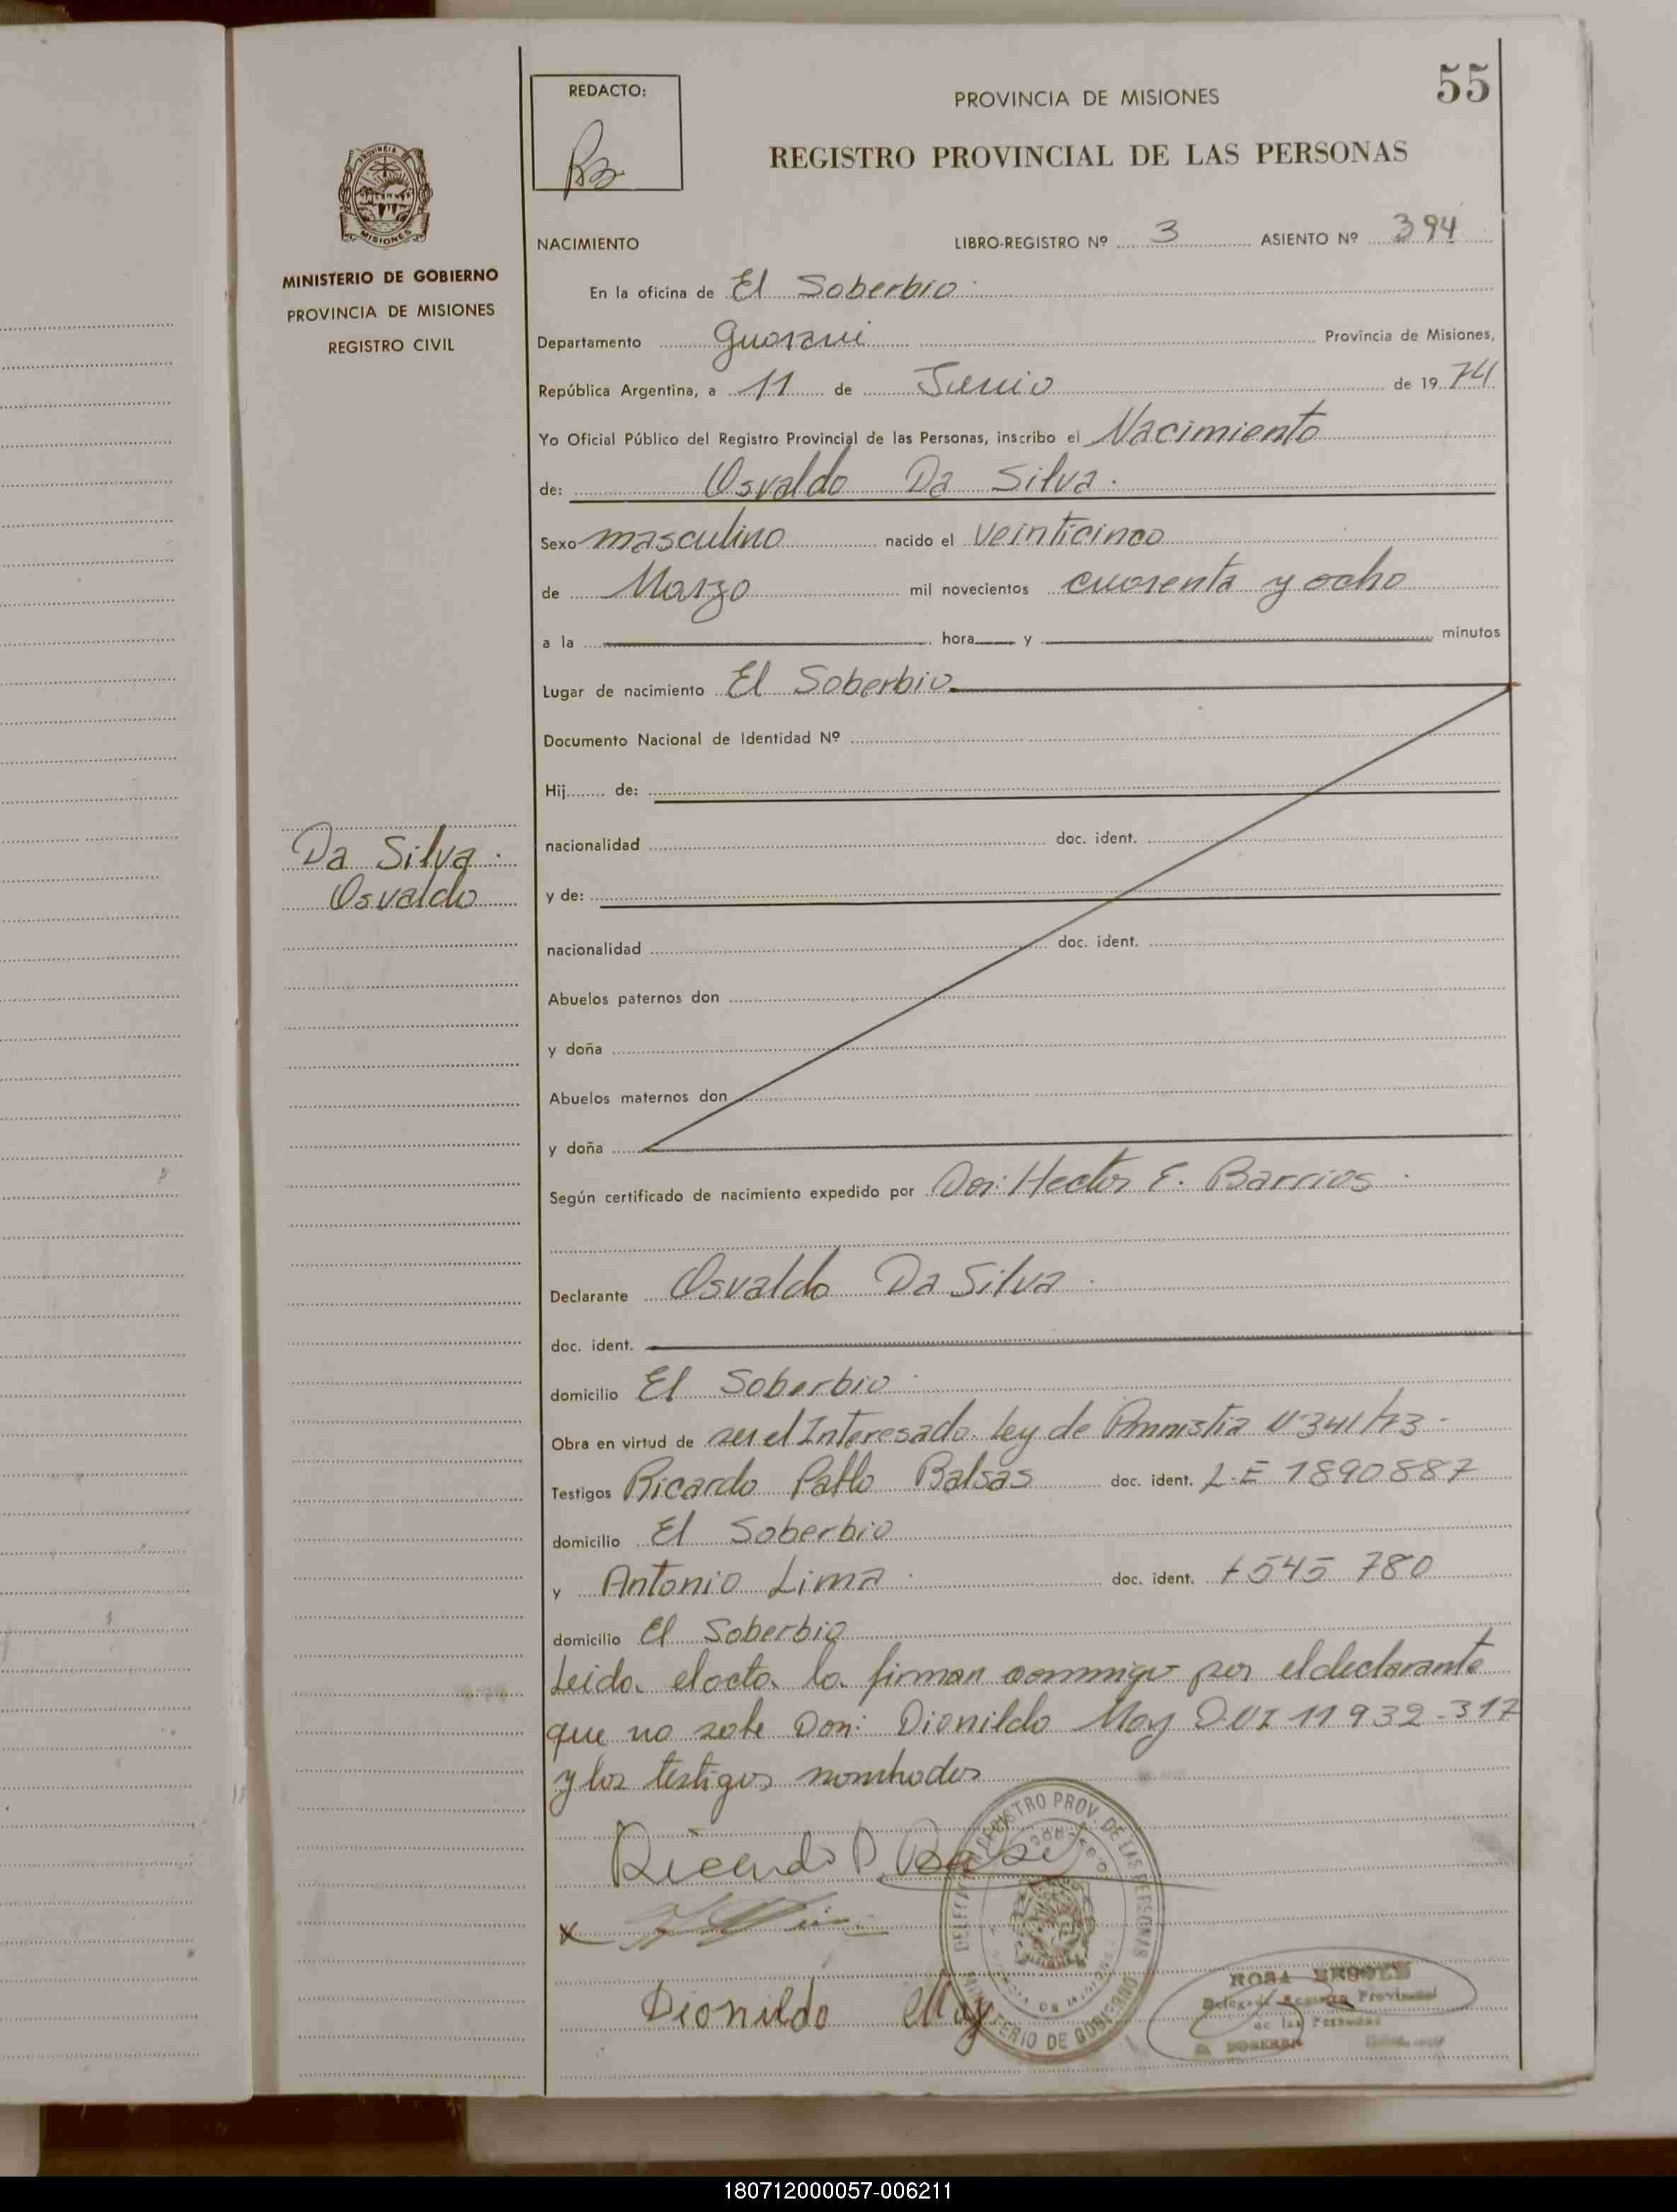 55
REDACTO:
PROVINCIA DE MISIONES
REGISTRO PROVINCIAL DE LAS PERSONAS
PROVINCIA
MISIONES
MINISTERIO DE GOBIERNO
PROVINCIA DE MISIONES
REGISTRO CIVIL
NACIMIENTO LIBRO-REGISTRO Nº 3 ASIENTO Nº 394
En la oficina de El Soberbio
Departamento Guarani Provincia de Misiones,
República Argentina, a 11 de Junio de 1974
Yo Oficial Público del Registro Provincial de las Personas, inscribo el Nacimiento
de: Osvaldo Da Silva.
Sexo masculino nacido el veinticinco
de Marzo mil novecientos cuarenta y ocho
a la hora y minutos
Lugar de nacimiento El Soberbio
Documento Nacional de Identidad Nº
Hij de:
nacionalidad doc. ident.
Da Silva.
Osvaldo
y de:
nacionalidad doc. ident.
Abuelos paternos don
y doña
Abuelos maternos don
y doña
Según certificado de nacimiento expedido por Don: Hector E. Barrios.
Declarante Osvaldo Da Silva
doc. ident.
domicilio El Soberbio
Obra en virtud de ser el Interesado Ley de Amnistia 341/73-
Testigos Ricardo Pablo Balsas doc. ident. L.E 1890887
domicilio El Soberbio
y Antonio Lima doc. ident. 545 780
domicilio El Soberbio
Leida el acta la firman conmigo por el declarante
que no sabe Don: Dionildo May D.N.I 11 932-317
y los testigos nombrados
Dionildo May
REGISTRO PROV. DE LAS PERSONAS
MINISTERIO DE GOBIERNO
ROSA
180712000057-006211